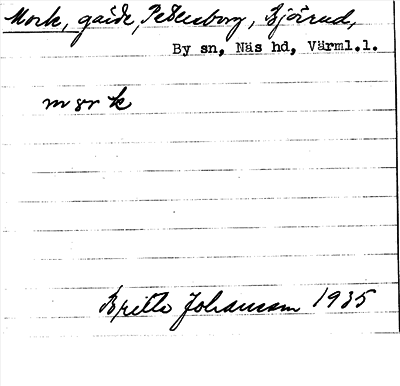 Mork, gärde, Petersborg, Björud,
By sn, Näs hd, Värml.l.
mørk
Britta Johansson 1935